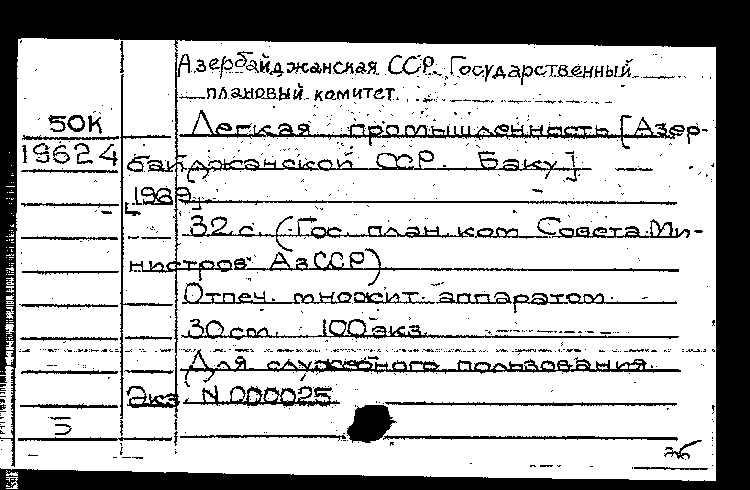 Азербайджанская ССР. Государственный
плановый комитет.
50К Легкая промышленность [Азер-
19624 байджанской ССР. Баку]
[1969]
32 с. (Гос. план. ком Совета Ми-
нистров АзССР)
Отпеч. множит. аппаратом.
30 см. 100 экз.
Для служебного пользования.
Экз. N 000025